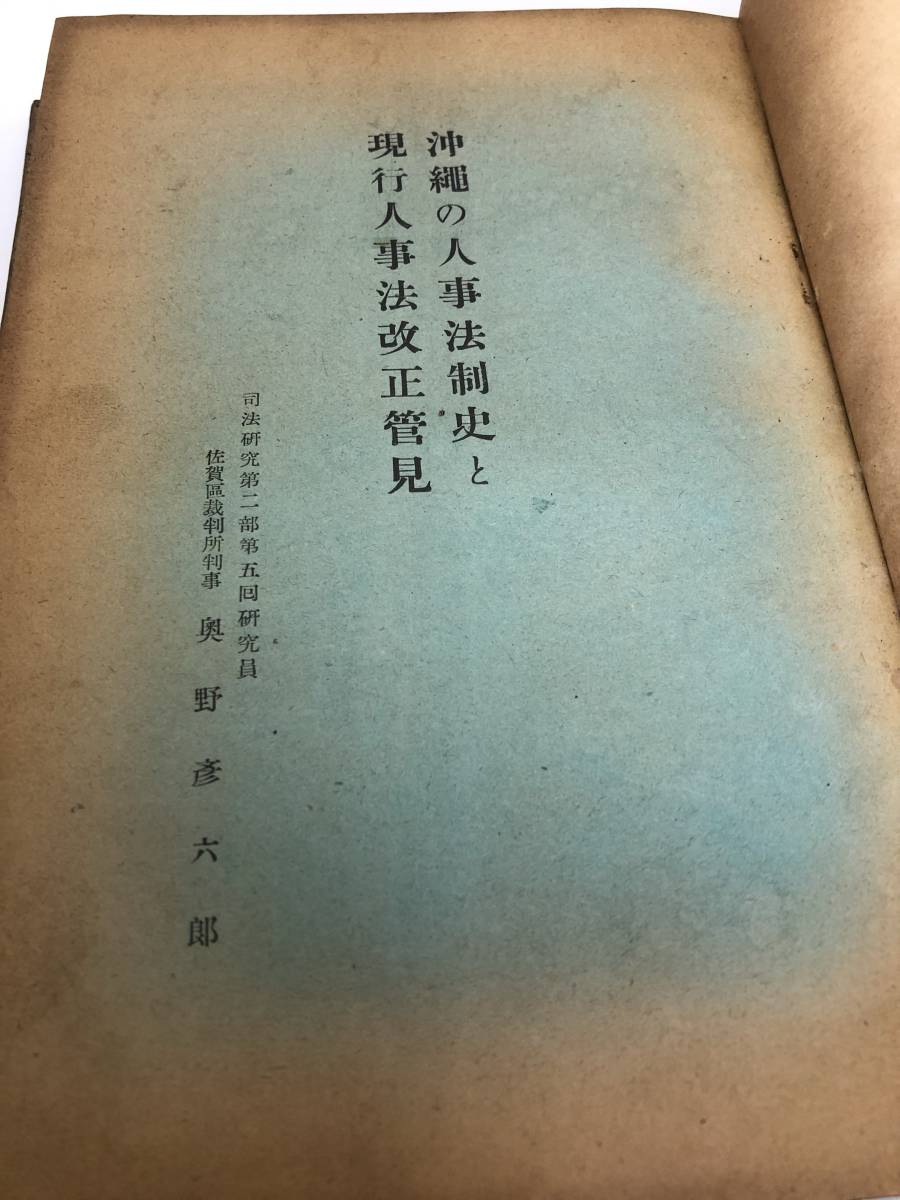 沖繩の人事法制史と
現行人事法改正管見
司法硏究第二部第五囘硏究員
佐賀區裁判所判事 奥野彥六郎